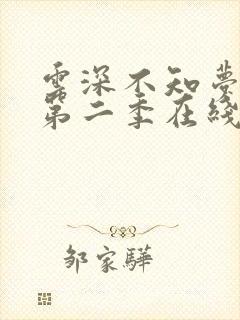 雲深不知夢
第二季在綫
邹家驊